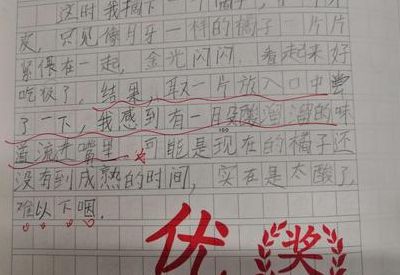 这时我摘下一个橘子,
皮,只见像月牙一样的橘子一片片
紧偎在一起,金光闪闪,看起来好
吃极了,结果,取一片放入口中尝
了一下,我感到有一股酸溜溜的味
道流进嘴里,可能是现在的橘子还
没有到成熟的时间,实在是太酸了,
难以下咽。
优 奖